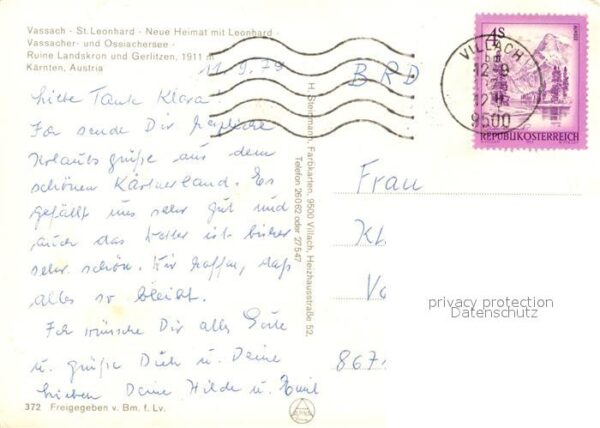 Vassach - St. Leonhard - Neue Heimat mit Leonhard -
Vassacher- und Ossiachersee -
Ruine Landskron und Gerlitzen, 1911 m
Kärnten, Austria
11.9.79
BRD
Liebe Tante Klara!
Ich sende Dir herzliche
Urlaubsgrüße aus dem
schönen Kärtnerland. Es
gefällt uns sehr gut und
auch das Wetter ist bisher
sehr schön. Wir hoffen, daß
alles so bleibt.
Ich wünsche Dir alles Gute
u. grüße Dich u. Deine
Lieben Deine Hilde u. Emil
372 Freigegeben v. Bm. f. Lv.
H. Steinmann, Farbkarten, 9500 Villach, Heizhausstraße 52,
Telefon 26062 oder 27547
4S
REPUBLIK ÖSTERREICH
VILLACH
9500
Frau
Kl
Vo
867
privacy protection
Datenschutz